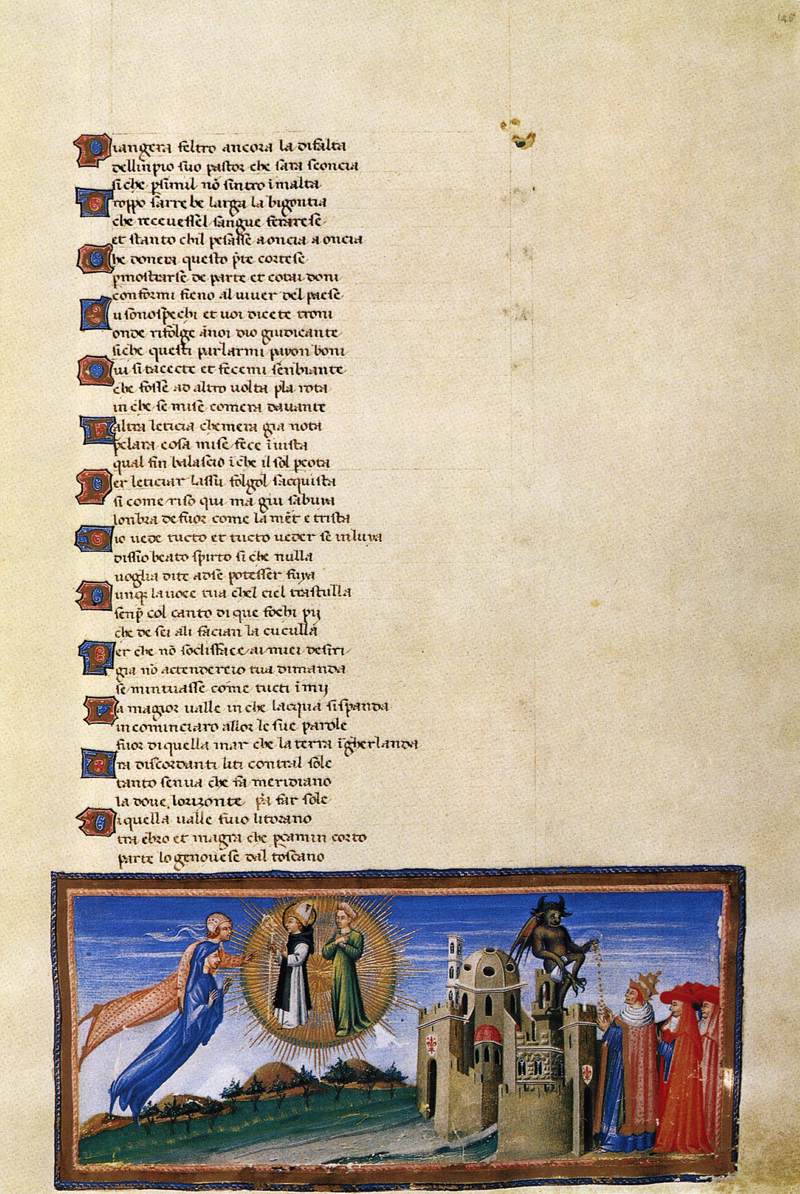 Piangera feltro ancora la difalta
dellinpio suo pastor che sara sconcia
si che psimil nō sintro ī malta
Troppo sarrebe larga la bigontia
che receuessel sangue ferarese
et stanto chil pesasse a oncia a oncia
Che donera questo p̄te cortese
pmostrarse de parte et cotai doni
conformi fieno al uiuer del paese
Su sono spechi et uoi dicete troni
onde rifolge ānoi dio giudicante
siche questi parlarmi pavon boni
Qui si tacecte et fecemi senbiante
che fosse ad altro uolta pla rota
in che se mise comera dauante
Laltra leticia chemera gia nota
pclara cosa mise fece ī uista
qual fin balascio ī che il sol pcota
Per leticiar lassu folgol sacquista
si come riso qui ma giu sabuia
lonbra de fuor come la mēt e trista
Dio uede tucto et tucto ueder se inluia
dissio beato spirto si che nulla
uoglia dite adse potesser fuya
Dunq; la uoce tua chel ciel trastulla
senp̄ col canto di que fochi pij
che de sei ali facian la cuculla
Per che nō sodisface ai miei desiri
gia nō actendereio tua dimanda
se mintuasse come tucti ī mij
La magior ualle in che lacqua si spanda
incominciaro allor le sue parole
fuor di quella mar che la terra īgherlanda
Tra discordanti liti contral sole
tanto senua che fa meridiano
la doue lorizonte p̄a far sole
Di quella ualle fuio litorano
tra ebro et magra che pcamin corto
parte lo genouese dal toscano